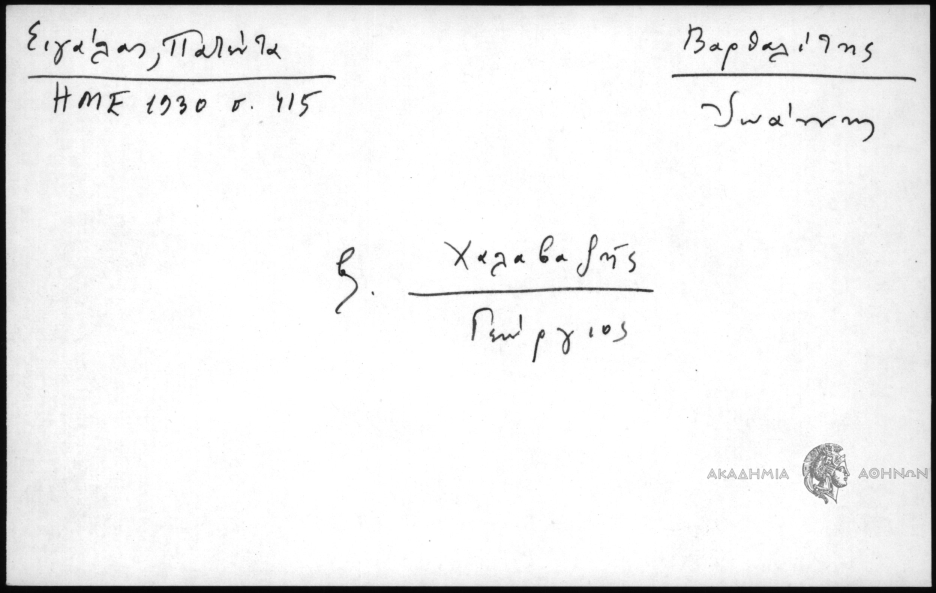 Σιγάλας, Πατέντα
ΗΜΕ 1930 σ. 415
Βαρθαλίτης
Ἰωάννης
β. Χαλαβαζῆς
Γεώργιος
ΑΚΑΔΗΜΙΑ ΑΘΗΝΩΝ